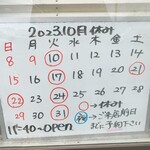 2023.10月 休み
日 月 火 水 木 金 土
8 9 10 11 12 13 14
15 16 17 18 19 20 21
22 23 24 25 26 27 28
29 30 31 休み
ご来店前日
までに予約下さい
11:40~OPEN